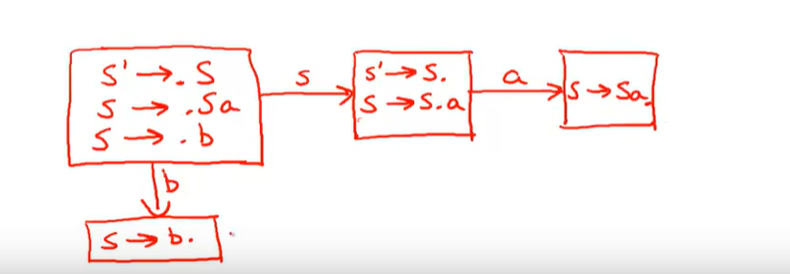 S' → . S
S → . Sa
S → . b
S
S' → S.
S → S.a
a
S → Sa.
b
S → b.